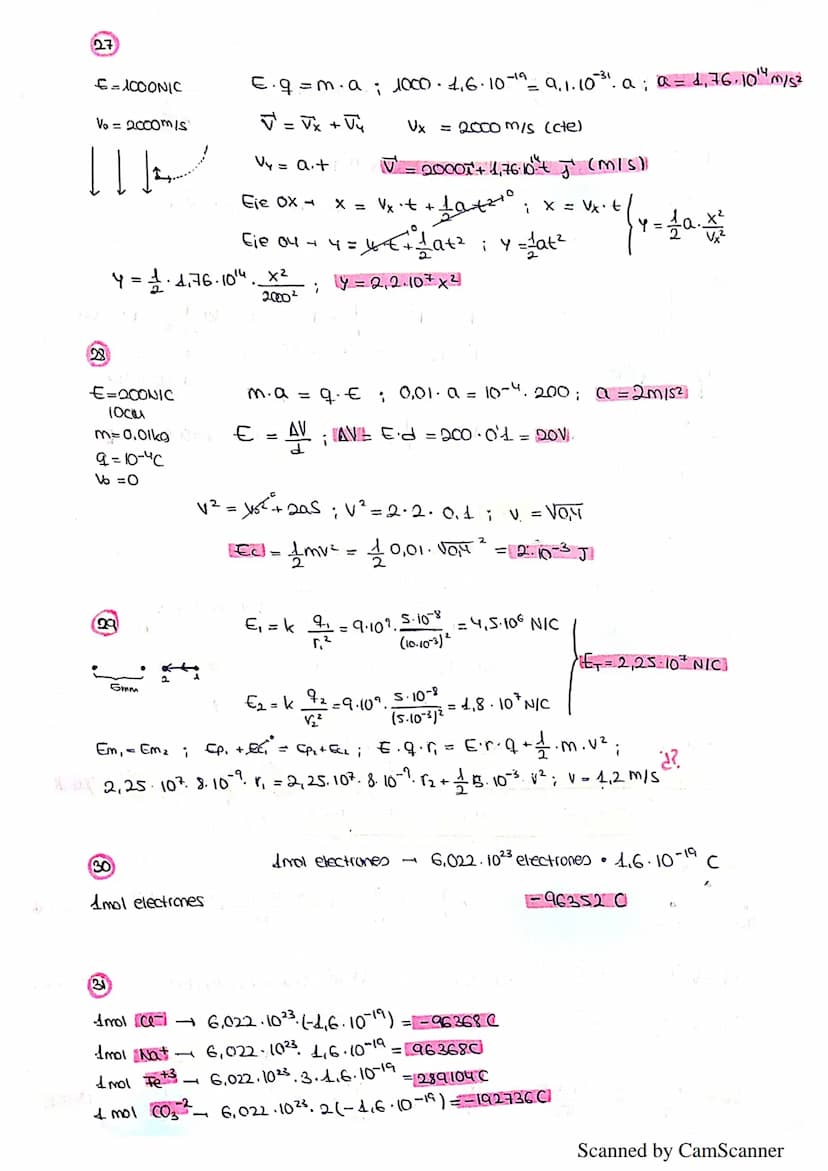 27
E=1000N/C E·q = m·a ; 1000·1,6·10⁻¹⁹ = 9,1·10⁻³¹·a ; a = 1,76·10¹⁴ m/s²
V₀ = 2000m/s V⃗ = V⃗x + V⃗y Vx = 2000 m/s (cte)
Vy = a·t V⃗ = 2000i⃗ + 1,76·10¹⁴t j⃗ (m/s)
Eje OX → x = Vx·t + 1/2 at² ⁰ ; x = Vx·t
Eje OY → y = V₀t ⁰ + 1/2 at² ; y = 1/2 at² y = 1/2 a · x²/Vx²
y = 1/2 · 1,76·10¹⁴ · x²/2000² ; y = 2,2·10⁷x²
28
E=200N/C m·a = q·E ; 0,01·a = 10⁻⁴·200 ; a = 2m/s²
10cm
m=0,01kg E = ΔV/d ; ΔV = E·d = 200·0'1 = 20V
q = 10⁻⁴C
V₀ = 0
V² = V₀² ⁰ + 2aS ; V² = 2·2·0,1 ; v = √0,4
Ec = 1/2 mv² = 1/2 0,01·√0,4 ² = 2·10⁻³ J
29
E₁ = k q₁/r₁² = 9·10⁹ · 5·10⁻⁸/(10·10⁻³)² = 4,5·10⁶ N/C
5mm 2 1 E_T = 2,25·10⁷ N/C
E₂ = k q₂/r₂² = 9·10⁹ · 5·10⁻⁸/(5·10⁻³)² = 1,8·10⁷ N/C
Em₁ = Em₂ ; Ep₁ + Ec₁ ⁰ = Ep₂ + Ec₂ ; E·q·r₁ = E·r·q + 1/2·m·v² ;
2,25·10⁷·8·10⁻⁹·r₁ = 2,25·10⁷·8·10⁻⁹·r₂ + 1/2 · 10⁻³·v² ; v = 1,2 m/s ¿?
30
1mol electrones → 6,022·10²³ electrones · 1,6·10⁻¹⁹ C
1mol electrones -96352 C
31
1mol Cl⁻ → 6,022·10²³·(-1,6·10⁻¹⁹) = -96368 C
1mol Na⁺ → 6,022·10²³·1,6·10⁻¹⁹ = 96368C
1mol Fe⁺³ → 6,022·10²³·3·1,6·10⁻¹⁹ = 289104C
1 mol CO₃⁻² → 6,022·10²³·2(-1,6·10⁻¹⁹) = -192736C
Scanned by CamScanner